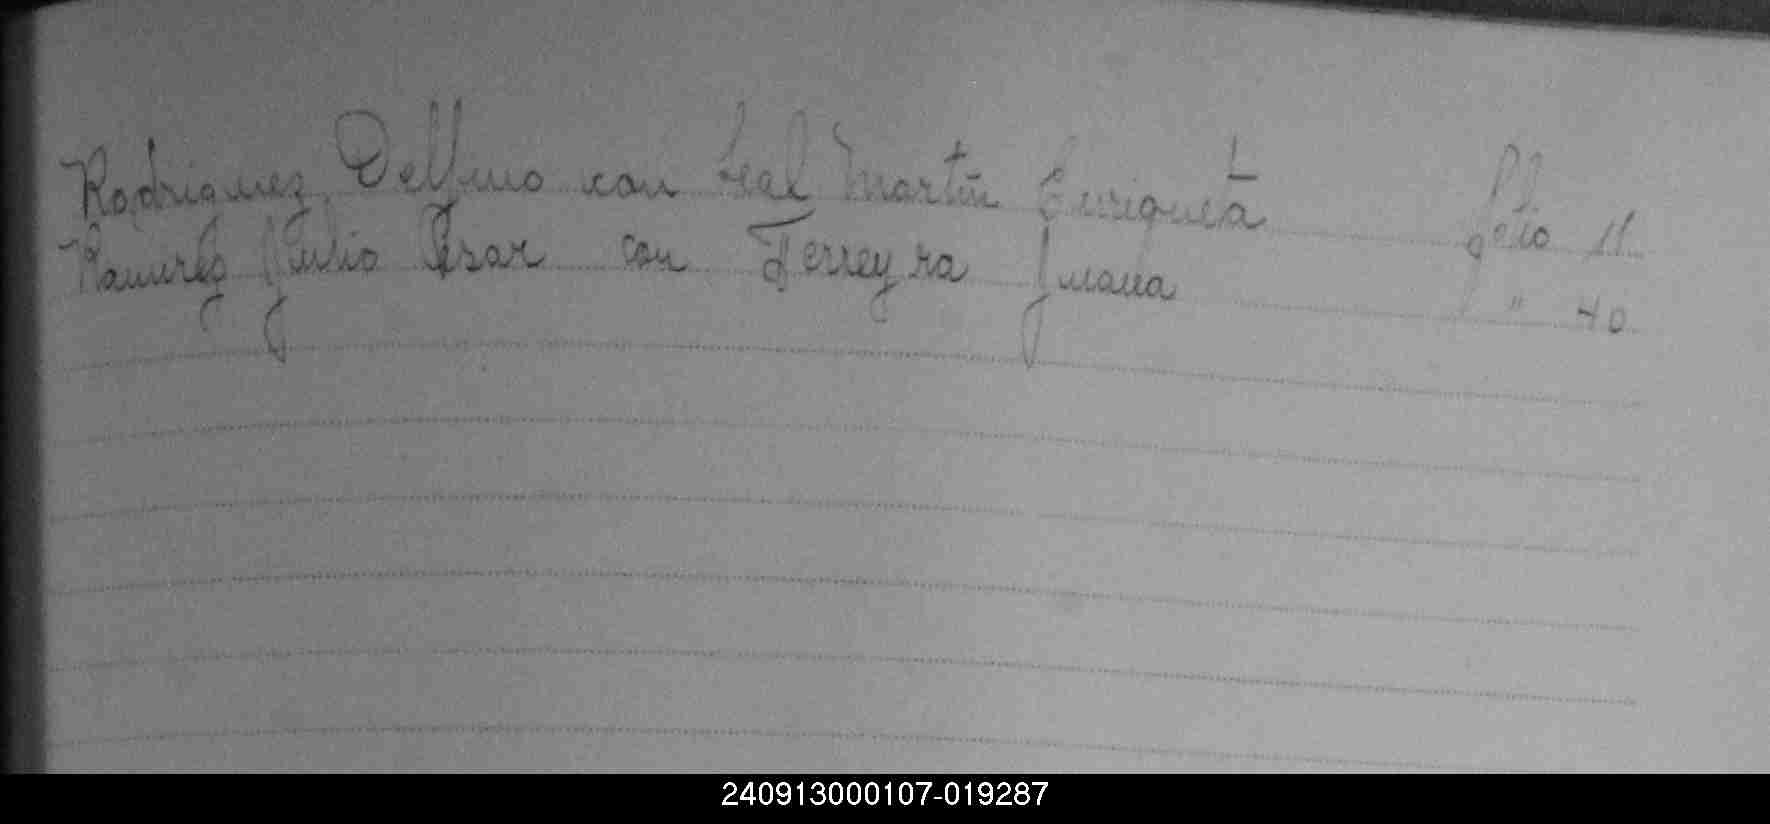 Rodriguez Delfino con Leal Martin Enriqueta folio 11
Ramirez Julio Cesar con Ferreyra Juana " 40
240913000107-019287